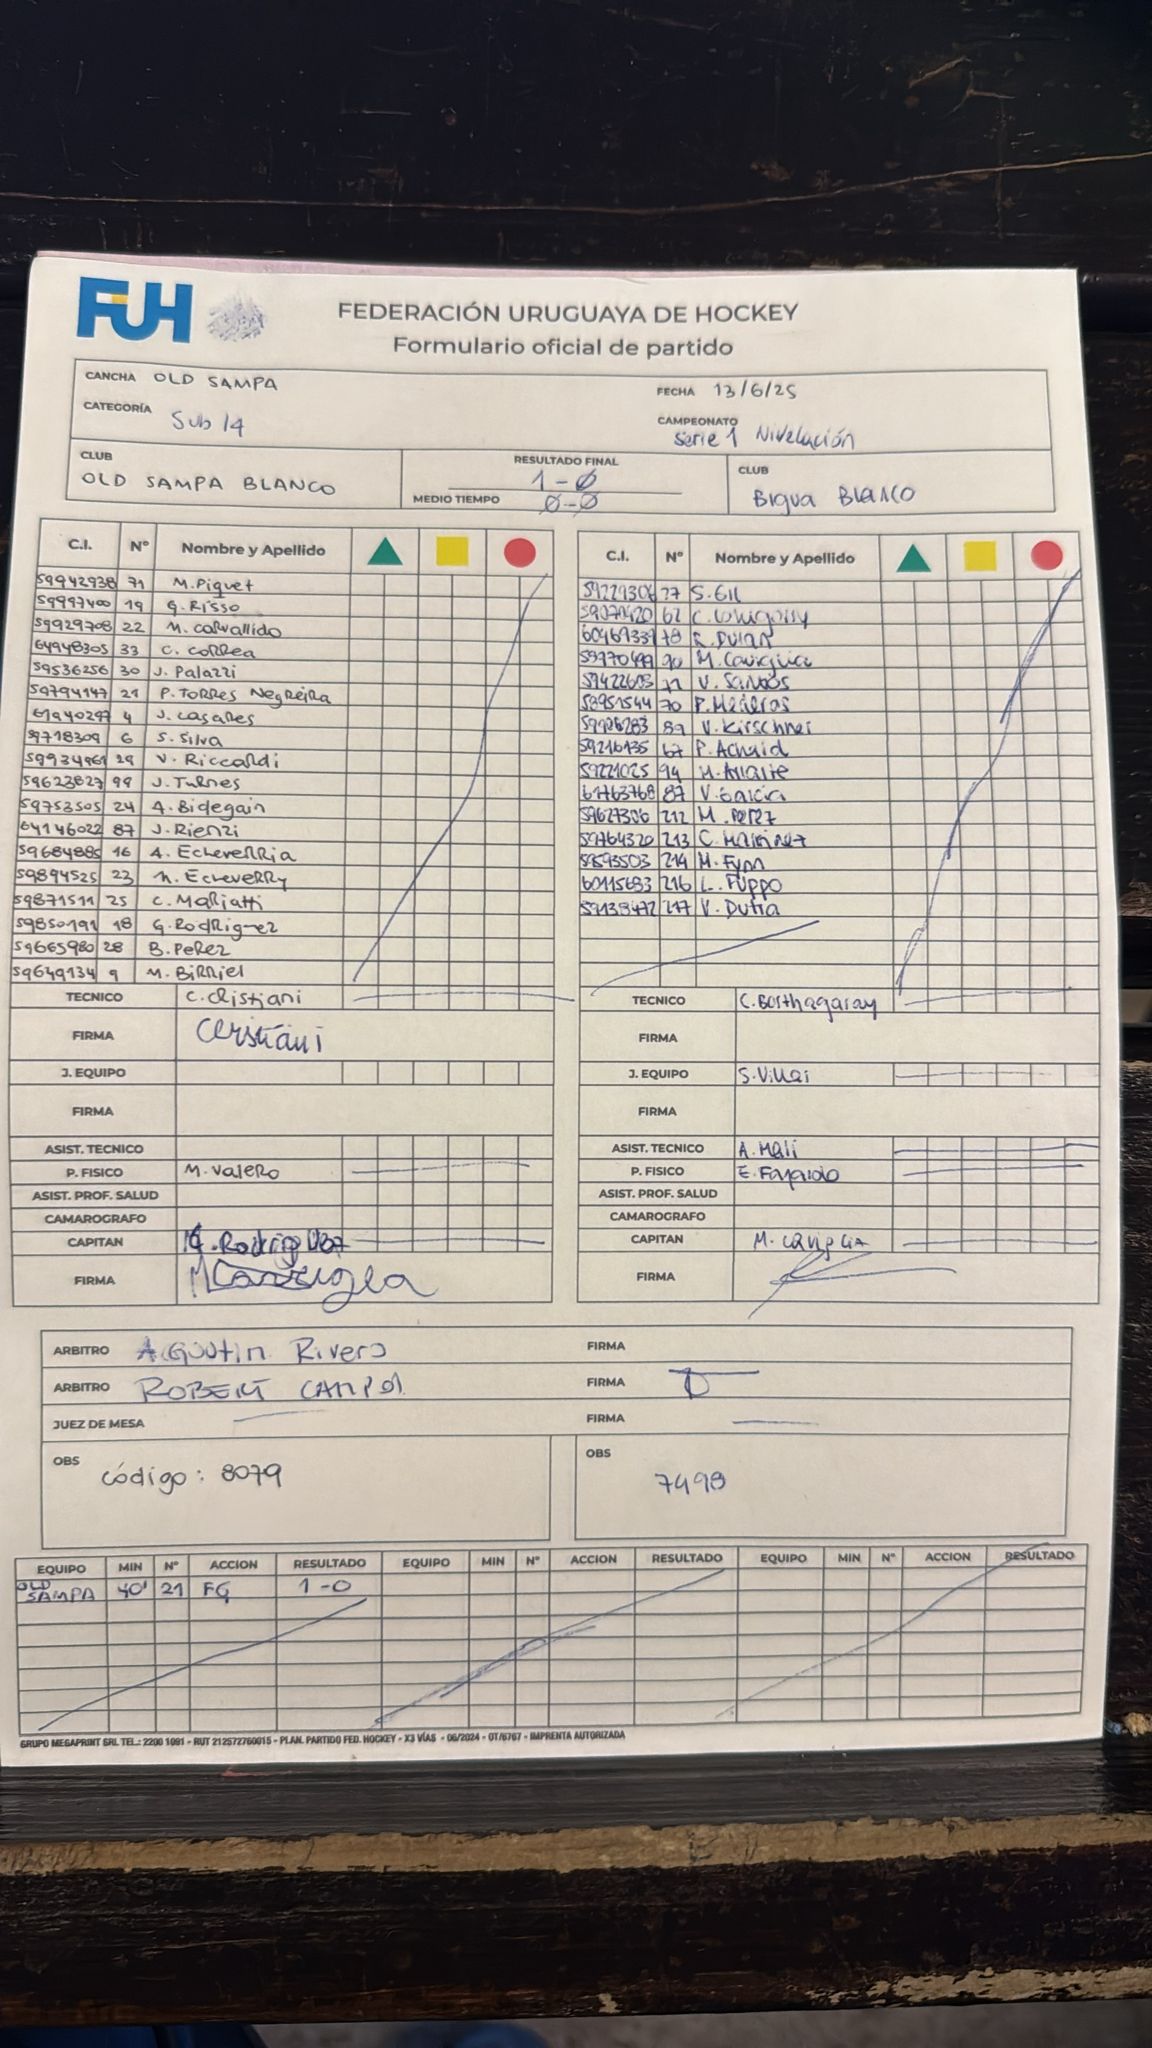 FUH
FEDERACIÓN URUGUAYA DE HOCKEY
Formulario oficial de partido
CANCHA OLD SAMPA
FECHA 13/6/25
CATEGORÍA Sub 14
CAMPEONATO Serie 1 Nivelación
CLUB OLD SAMPA BLANCO
RESULTADO FINAL 1-0
MEDIO TIEMPO 0-0
CLUB Bigua Blanco
C.I. Nº Nombre y Apellido
59942938 71 M. Piquet
59997400 19 G. Risso
59929708 22 M. Carvallido
64948305 33 C. Correa
59536256 30 J. Palazzi
59794147 21 P. Torres Negreira
61940297 4 J. Casares
59718309 6 S. Silva
59934961 29 V. Riccardi
59623827 99 J. Turnes
59753505 24 A. Bidegain
64146022 87 J. Rienzi
59684885 16 A. Echeverria
59894525 23 M. Echeverry
59871511 25 C. Mariatti
59850191 18 G. Rodriguez
59665980 28 B. Perez
59649134 9 M. Birriel
TECNICO C. Cristiani
FIRMA Cristiani
J. EQUIPO
FIRMA
ASIST. TECNICO
P. FISICO M. Valero
ASIST. PROF. SALUD
CAMAROGRAFO
CAPITAN G. Rodriguez
FIRMA
C.I. Nº Nombre y Apellido
59229306 27 S. Gil
59071420 62 C.
60469339 78 R. Duran
59970499 90 M. Caviglia
59422603 71 V. Santos
58951544 70 P. Mederos
59926283 89 V. Kirschner
59216135 67 P. Achard
59221025 94 M.
61763768 87 V. Garcia
59627306 212 M. Perez
59764320 213 C. Martinez
59593503 214 M. Fynn
60115683 216 L. Fuppo
59138472 217 V. Dutra
TECNICO C. Borthagaray
FIRMA
J. EQUIPO S. Villar
FIRMA
ASIST. TECNICO A. Mali
P. FISICO E. Fajardo
ASIST. PROF. SALUD
CAMAROGRAFO
CAPITAN M. Caviglia
FIRMA
ARBITRO Agustin Rivero FIRMA
ARBITRO ROBERT CAMPOS FIRMA
JUEZ DE MESA FIRMA
OBS código: 8079
OBS 7498
EQUIPO MIN Nº ACCION RESULTADO EQUIPO MIN Nº ACCION RESULTADO EQUIPO MIN Nº ACCION RESULTADO
OLD SAMPA 40' 21 FG 1-0
GRUPO MEGAPRINT SRL TEL.: 2200 1091 - RUT 212572760015 - PLAN. PARTIDO FED. HOCKEY - X3 VÍAS - 06/2024 - OT/6767 - IMPRENTA AUTORIZADA